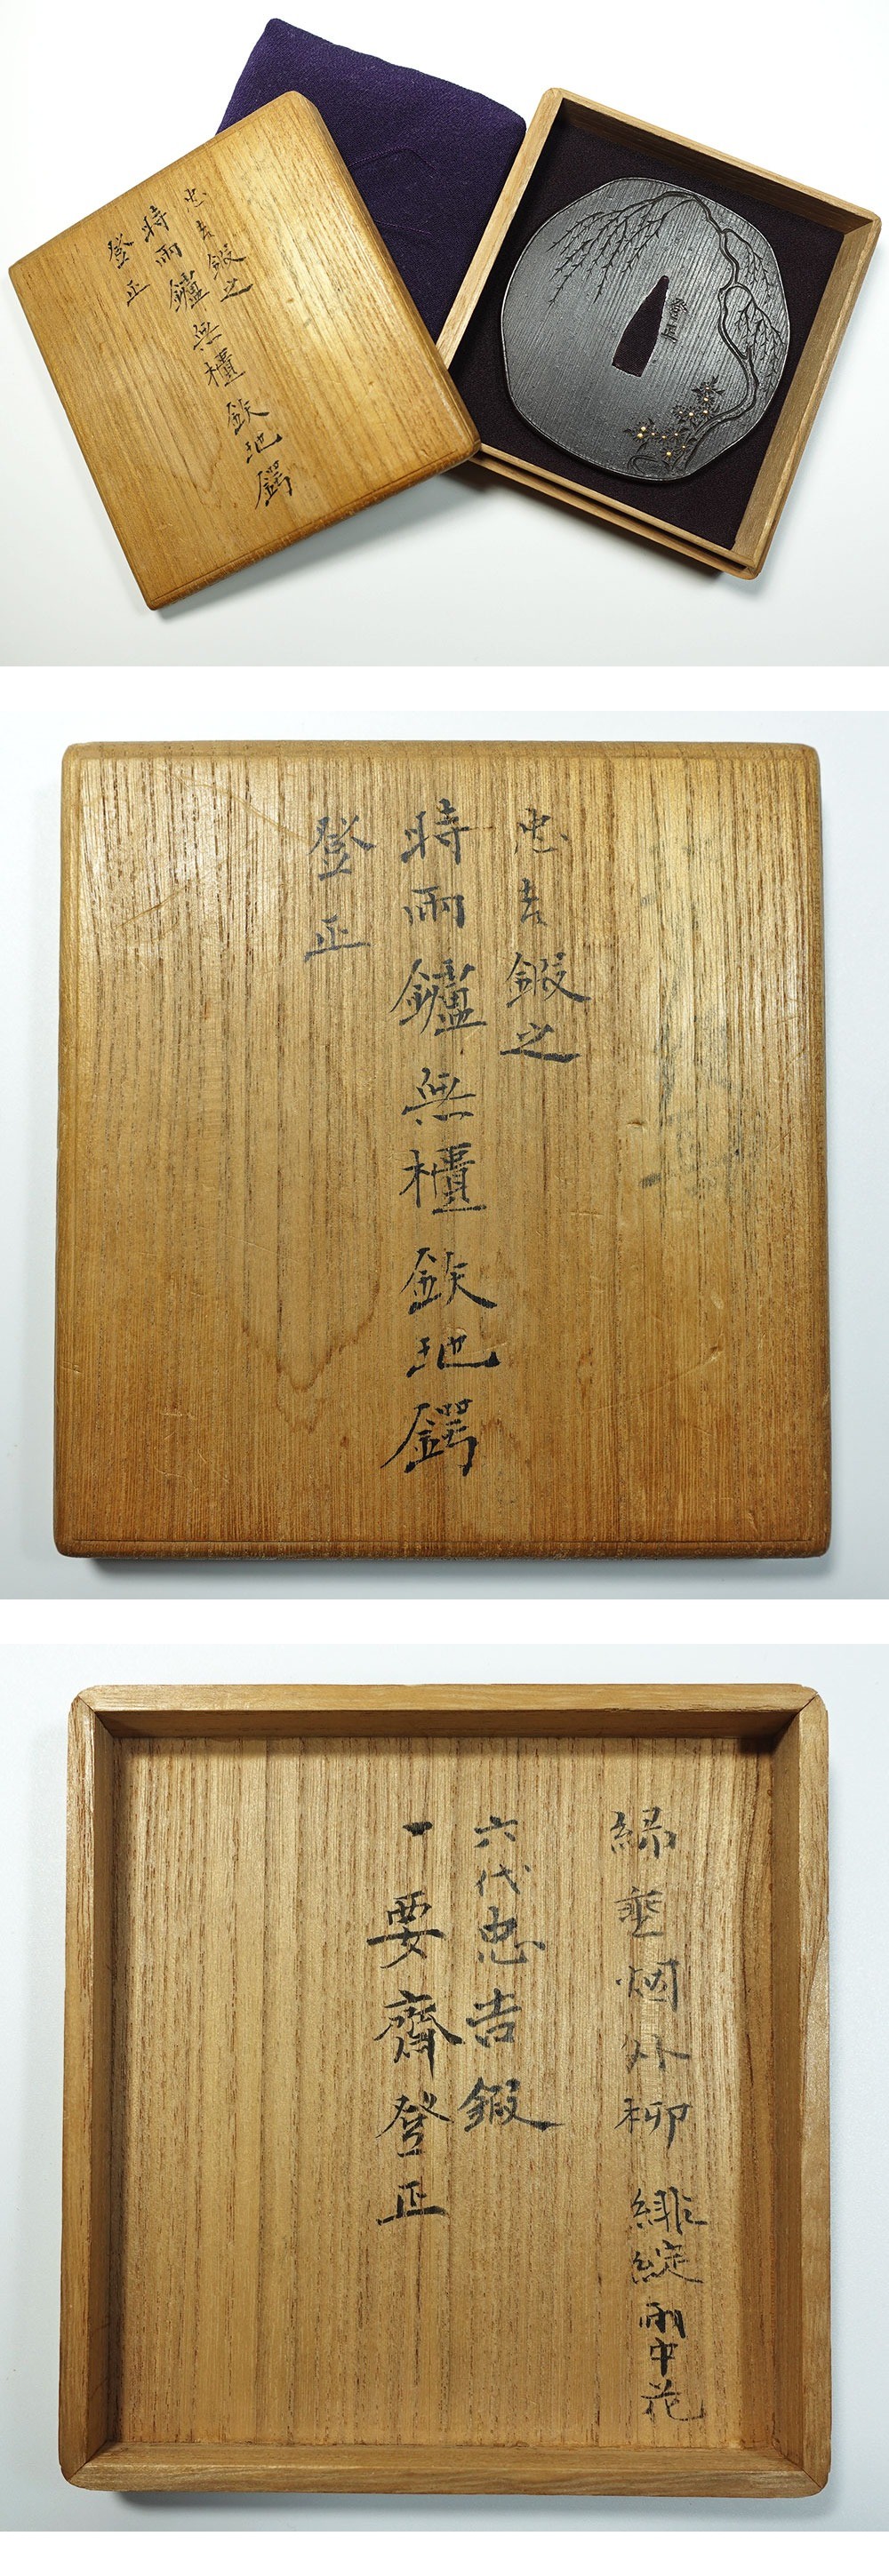 忠吉鍛之
時雨鑪無櫃鉄地鍔
登正
登正
忠吉鍛之
時雨鑪無櫃鉄地鍔
登正
緑垂烟外柳 緋綻雨中花
六代忠吉鍛
一要齋登正